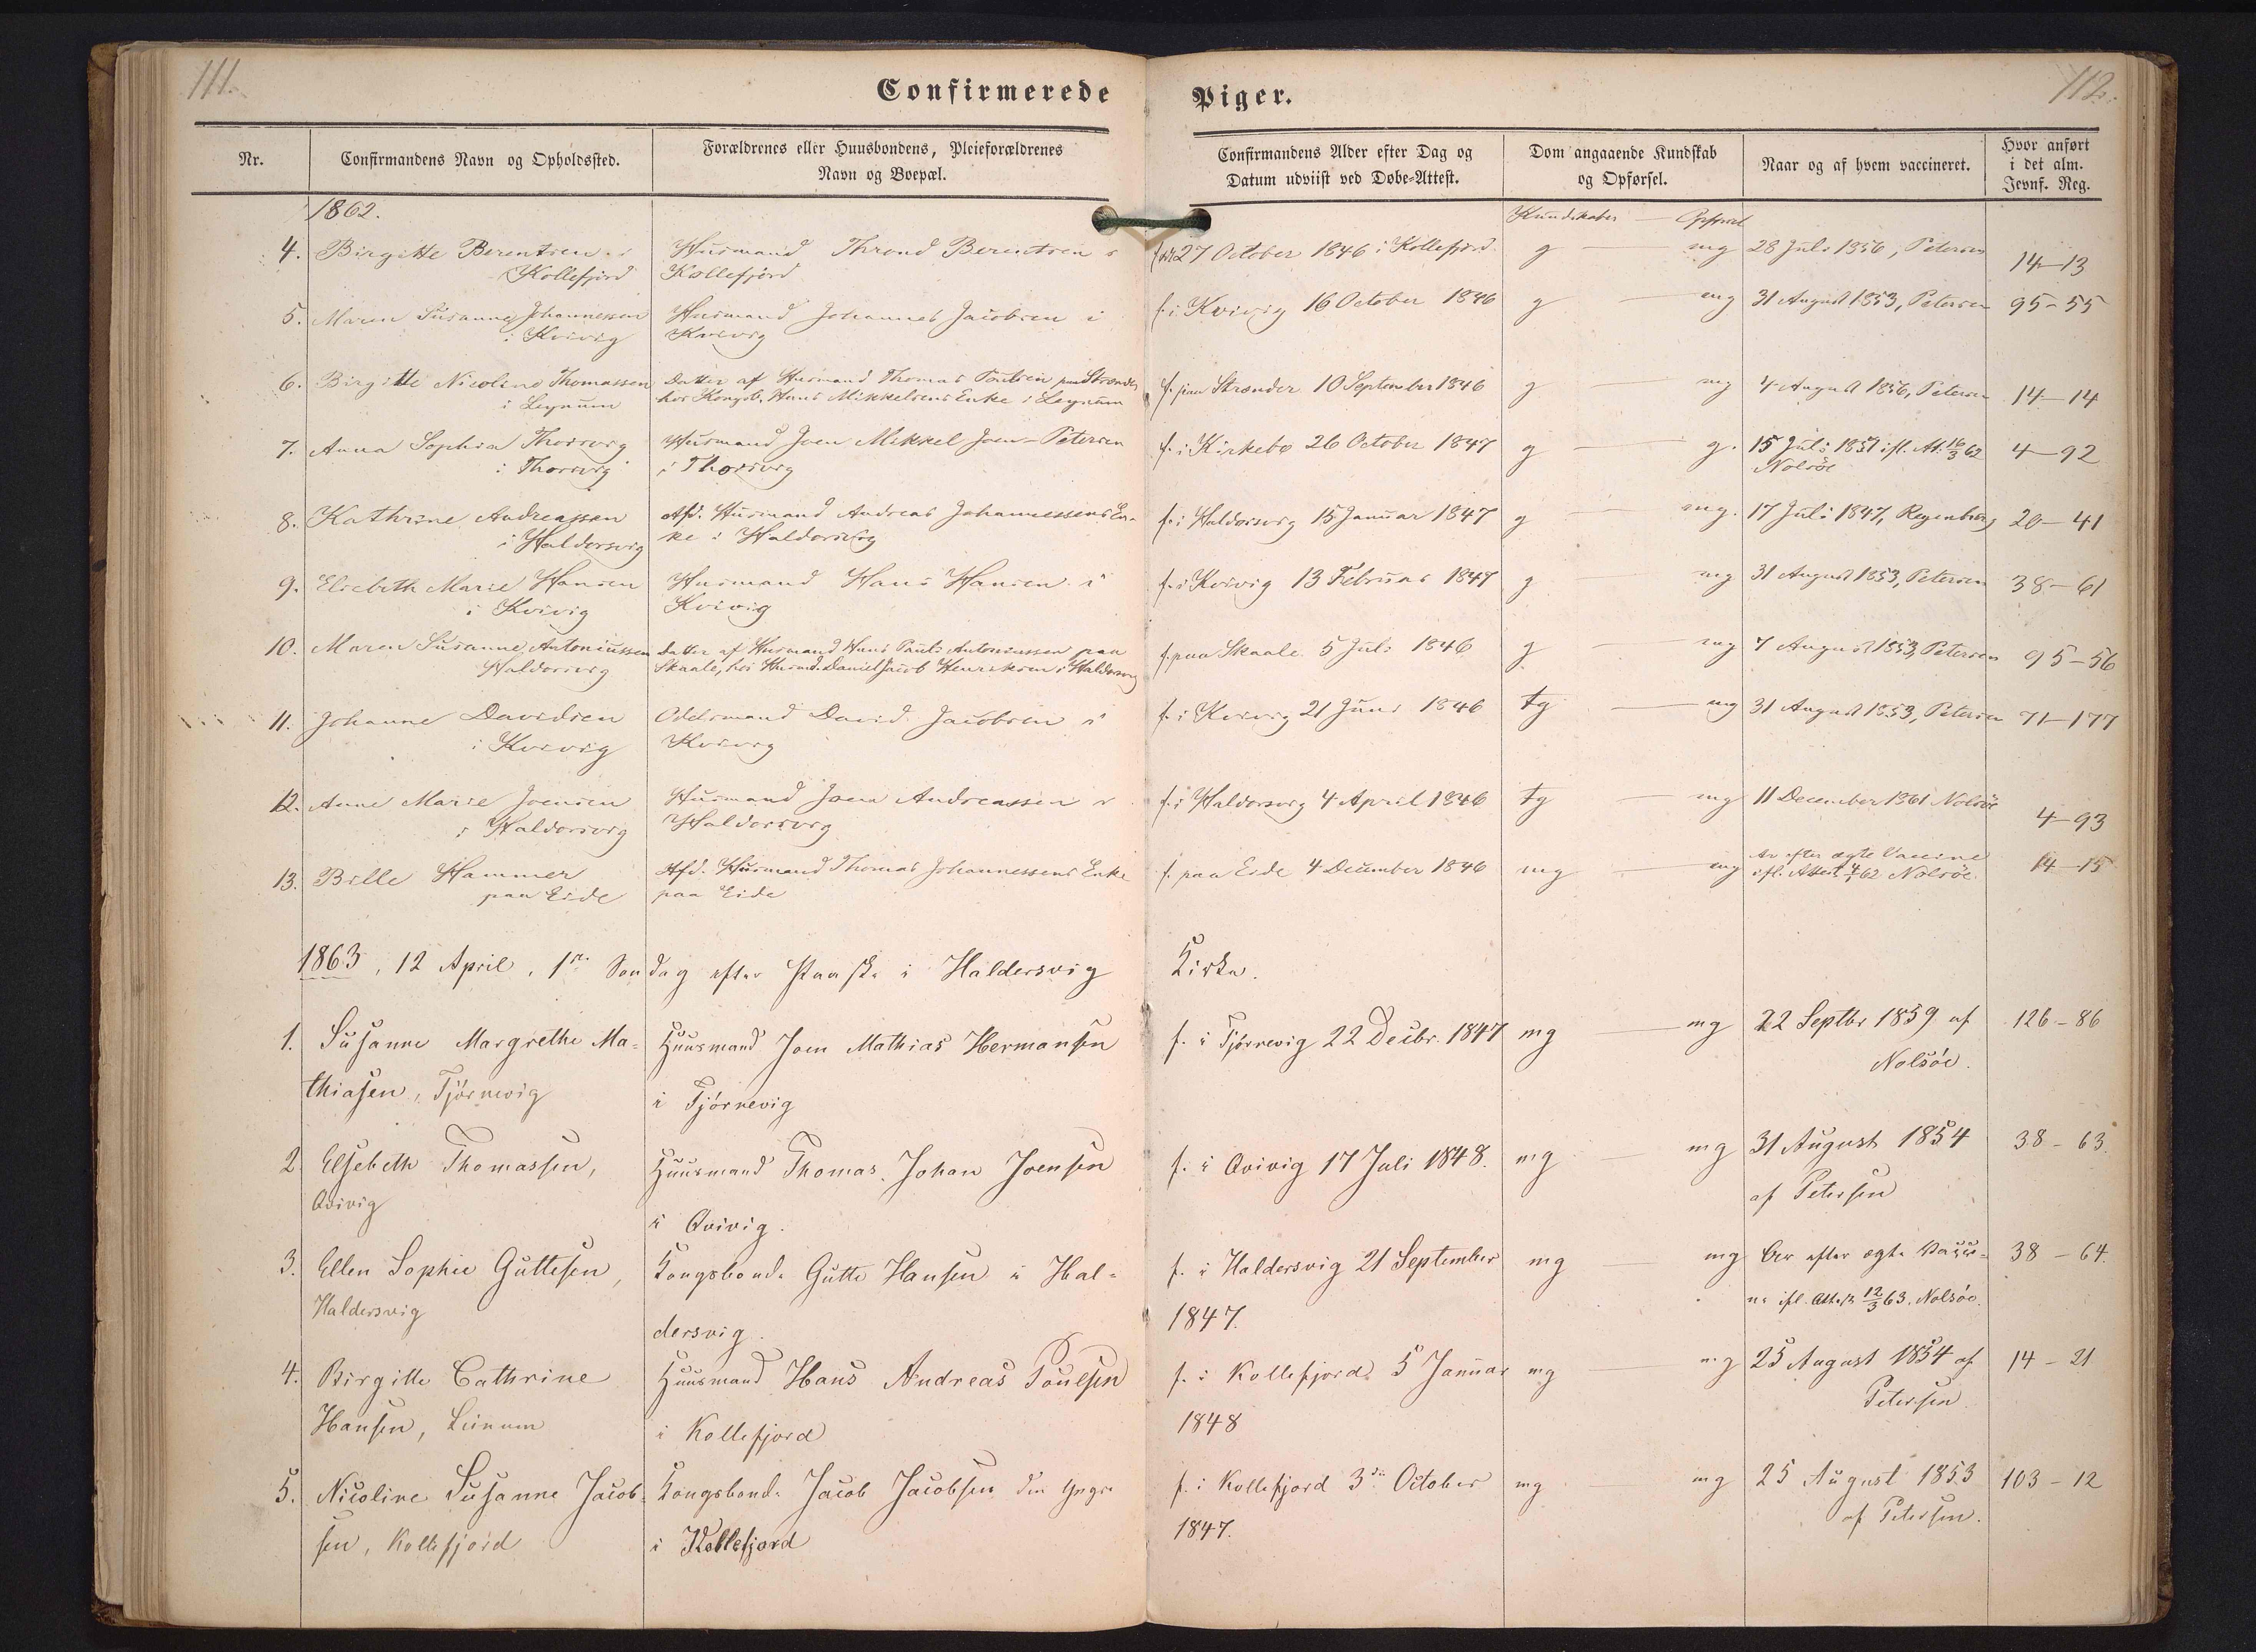 111.
112.
Confirmerede Piger.
Nr.
Confirmandens Navn og Opholdssted.
Forældrenes eller Huusbondens, Pleieforældrenes
Navn og Boepæl.
Confirmandens Alder efter Dag og
Datum udviist ved Døbe-Attest.
Dom angaaende Kundskab
og Opførsel.
Naar og af hvem vaccineret.
Hvor anført
i det alm.
Jevnf. Reg.
1862.
Kundskaber — Opførsel
4. Birgitte Berentsen i Husmand Thrond Berentsen i 27 October 1846 i Kollefjord g — mg 28 Juli 1856, Petersen 14-13
Kollefjord Kollefjord
5. Maren Susanne Johannessen Husmand Johannes Jacobsen i f. i Kvivig 16 October 1846 g — mg 31 August 1853, Petersen 95-55
i Kvivig Kvivig
6. Birgitte Nicoline Thomassen Datter af Husmand Thomas Poulsen paa Strænder f. paa Strænder 10 September 1846 g — mg 4 August 1856, Petersen 14-14
i Leynum hos Kongsb. Hans Mikkelsens Enke i Leynum
7. Anna Sophia Thorsvig Husmand Joen Mikkel Joen-Petersen f. i Kirkebø 26 October 1847 g — g. 15 Juli 1851 ifl. Att. 16/3 62 4-92
i Thorsvig i Thorsvig Nolsöe
8. Kathrine Andreassen Afd. Husmand Andreas Johannessens En- f. i Haldorsvig 15 Januar 1847 g — mg. 17 Juli 1847, Regenburg 20-41
i Haldorsvig ke i Haldorsvig
9. Elsebeth Marie Hansen Husmand Hans Hansen i f. i Kvivig 13 Februar 1847 g — mg 31 August 1853, Petersen 38-61
i Kvivig Kvivig
10. Maren Susanne Antoniussen Datter af Husmand Hans Pauli Antoniussen paa f. paa Skaale 5 Juli 1846 g — mg 7 August 1853, Petersen 95-56
Haldorsvig Skaale, hos Husmd. Daniel Jacob Henriksen i Haldorsvig
11. Johanne Davidsen Odelsmand David Jacobsen i f. i Kvivig 21 Juni 1846 tg — mg 31 August 1853, Petersen 71-177
i Kvivig Kvivig
12. Anne Marie Joensen Husmand Joen Andreassen i f. i Haldorsvig 4 April 1846 tg — mg 11 December 1861 Nolsöe 4-93
i Haldorsvig Haldorsvig
13. Bille Hammer Afd. Husmand Thomas Johannessens Enke f. paa Eide 4 December 1846 mg — mg Ar efter ægte Vaccine 14-15
paa Eide paa Eide ifl. Attest 62 Nolsöe.
1863, 12 April, 1ste Søndag efter Paaske i Haldersvig Kirke.
1. Susanne Margrethe Ma- Huusmand Joen Mathias Hermansen f. i Tjörnevig 22 Decbr. 1847 mg — mg 22 Septbr 1859 af 126-86
thiasen, Tjörnevig i Tjörnevig Nolsöe.
2. Elsebeth Thomassen, Huusmand Thomas Johan Joensen f. i Qvivig 17 Juli 1848. mg — mg 31 August 1854 38-63.
Qvivig i Qvivig. af Petersen
3. Ellen Sophie Guttesen, Kongsbonde Gutte Hansen i Hal- f. i Haldersvig 21 September mg — mg Ar efter ægte Vacci- 38-64.
Haldersvig dersvig. 1847. ne ifl. Attest 12/3 63. Nolsöe.
4. Birgitte Cathrine Huusmand Hans Andreas Poulsen f. i Kollefjord 5 Januar mg — mg 25 August 1854 af 14-21
Hansen, Leinum i Kollefjord 1848 Petersen.
5. Nicoline Susanne Jacob- Kongsbonde Jacob Jacobsen den yngre f. i Kollefjord 3die October mg — mg 25 August 1853 103-12
sen, Kollefjord i Kollefjord 1847. af Petersen.